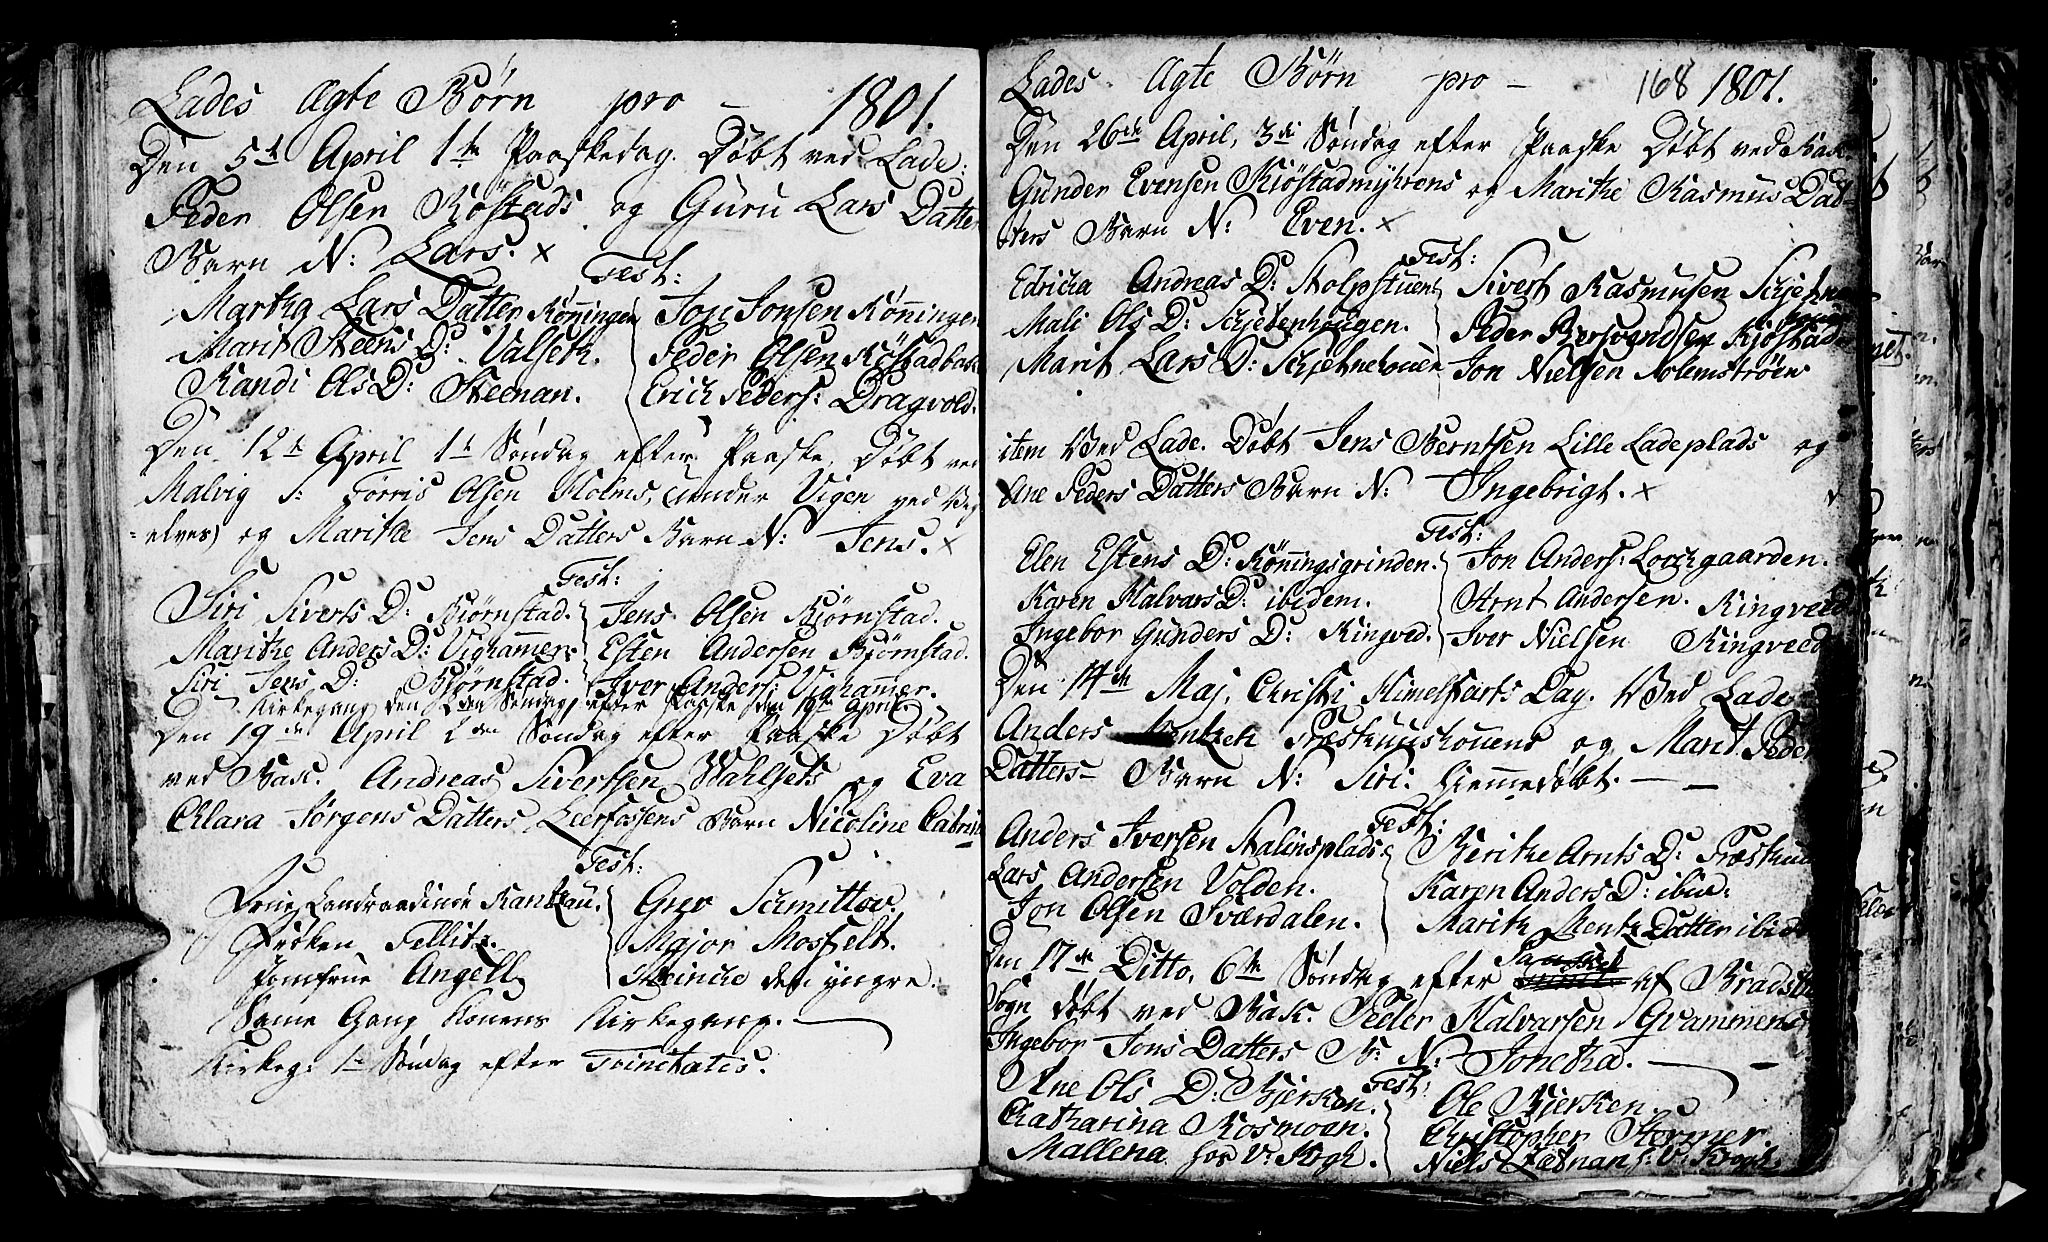 Lades Ægte Børn pro - 1801.
Den 5te April 1te Paaskedag. Døbt ved Lade:
Peder Olsen Røstads og Guru Lars Datters
Barn N: Lars. x
Test:
Martha Lars Datter Rønningen Jon Jonsen Rønningen
Marit Steens D: Valseth. Peder Olsen Røstadbak
Randi Ols D: Steenan. Erich Peders: Dragvold.
Den 12te April 1te Søndag efter Paaske, Døbt ved
Malvig S: Torris Olsen Holms, (under Vigen ved
elven) og Marithe Jens Datters Barn N: Jens. x
Test:
Siri Siverts D: Biørnstad. Jens Olsen Biørnstad.
Marithe Anders D: Vighammer. Esten Andersen Biørnstad.
Siri Jens D: Biørnstad. Iver Anders: Vighammer.
Kirkegang den 2den Søndag efter Paaske den 19de April.
Den 19de April 2den Søndag efter Paaske Døbt
ved Bak. Andreas Sivertsen Wahlsets og Eva
Chlara Jørgens Datters Leerfossens Barn Nicoline Cathrin
Test:
Frue Landraadinde Rantzau. Guv Schmettov.
Frøken Fellitz. Major Mosfelt.
Jomfrue Angell Meincke den yngre.
Samme Gang Konens Kirkegang.
Kirkeg: 1te Søndag efter Trinitatis.
Lades Ægte Børn pro - 168 1801.
Den 26de April, 3die Søndag efter Paaske Døbt ved Bak.
Gunder Evensen Kiøstadmyhrens og Marithe Rasmus Dat-
ters Barn N: Even. x
Test:
Edricka Andreas D: Stolpstuen Sivert Rasmusen Schjetne
Mali Ols D: Schjetenhougen. Peder Bersvendsen Kiøstad
Marit Lars D: Schjetnehouen Jon Nielsen Holemstrøen
item Ved Lade. Døbt Jens Berntsen Lille Ladeplads og
Ane Peders Datters Barn N: Ingebrigt. x
Test:
Elen Estens D: Rønningsgrinden. Jon Anders: Lorchgaarden.
Karen Halvars D: ibidem. Arnt Andersen. Ringveed
Ingebor Gunders D: Ringved. Iver Nielsen Ringveed
Den 14de Maj, Christi Himelfarts Dag. Ved Lade
Anders Præsthuushouens og Marit Peder
Datters- Barn N: Siri. hiemmedøbt.
Test:
Anders Iversen Stalinsplads. Berithe Arnts D: Præsthuus
Lars Andersen Volden. Karen Anders D: ibid:
Jon Olsen Sværdalen. Marith Mentz Datter ibid
Den 17de Ditto, 6te Søndag efter Paaske af Bradsb
Sogn døbt ved Bak. Peder Halvarsen Gvammens
Ingebor Jons Datters B: N: Jonetha.
Test:
Ane Ols D: Bjerken. Ole Bierken.
Chatharina Rosmoen. Christopher Stormer.
Mallena hos v: Krogh. Niels Lædnan h: v: Krogh.